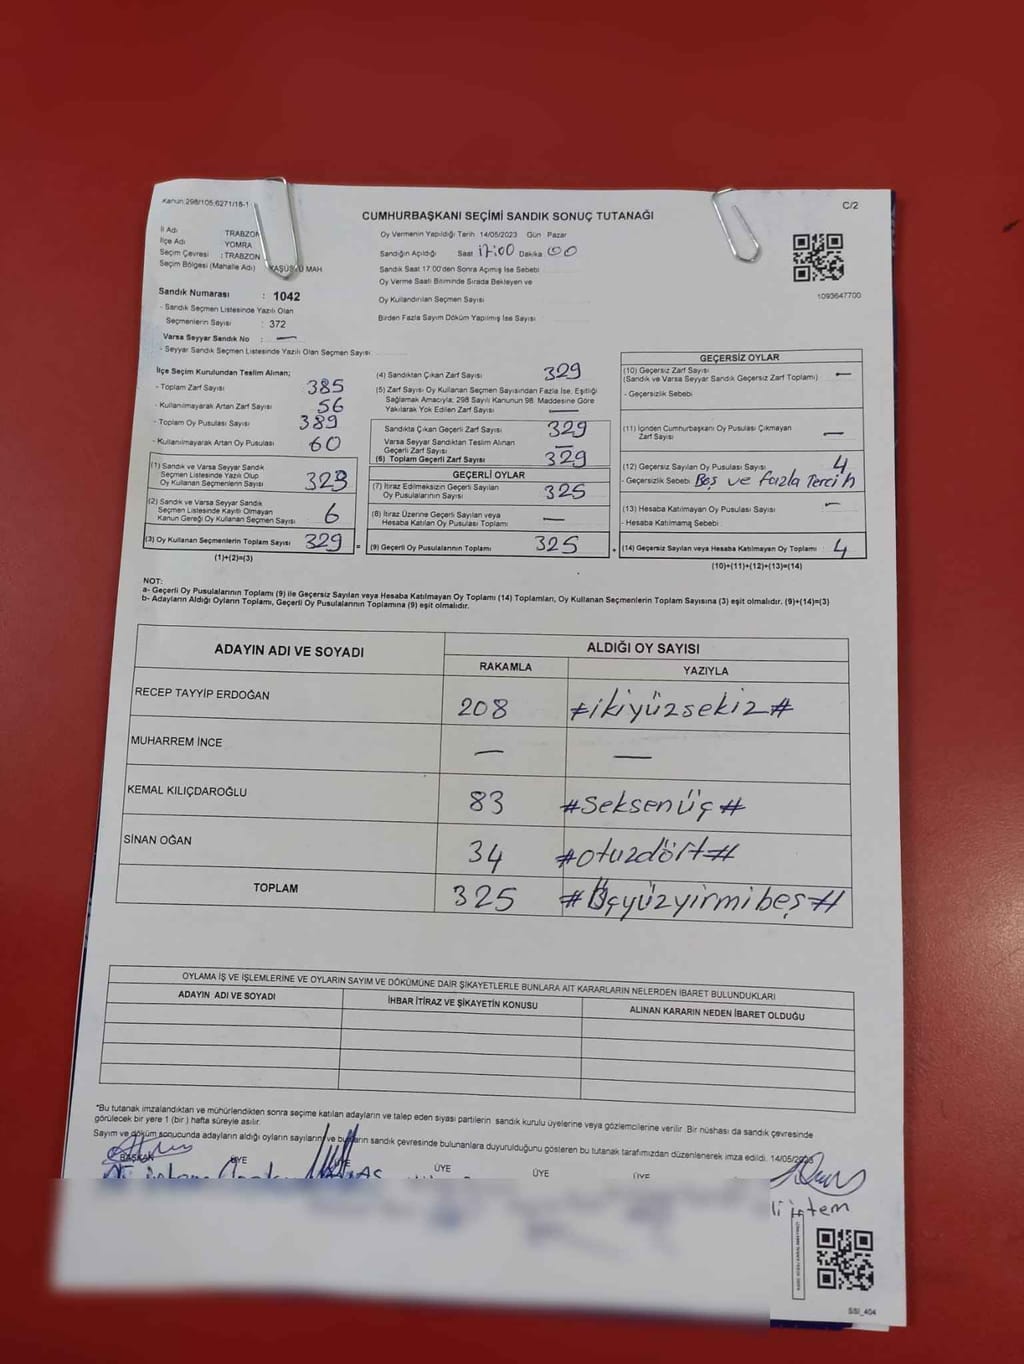 Kanun:298/105,6271/18-1
C/2
CUMHURBAŞKANI SEÇİMİ SANDIK SONUÇ TUTANAĞI
İl Adı TRABZON
İlçe Adı YOMRA
Seçim Çevresi : TRABZON
Seçim Bölgesi (Mahalle Adı) MAH
Oy Vermenin Yapıldığı Tarih 14/05/2023 Gün Pazar
Sandığın Açıldığı Saat 17:00 Dakika 00
Sandık Saat 17.00'den Sonra Açılmış İse Sebebi
Oy Verme Saati Bitiminde Sırada Bekleyen ve
Oy Kullandırılan Seçmen Sayısı
Birden Fazla Sayım Döküm Yapılmış İse Sayısı
1093647700
Sandık Numarası : 1042
- Sandık Seçmen Listesinde Yazılı Olan
Seçmenlerin Sayısı : 372
Varsa Seyyar Sandık No : —
- Seyyar Sandık Seçmen Listesinde Yazılı Olan Seçmen Sayısı
İlçe Seçim Kurulundan Teslim Alınan;
- Toplam Zarf Sayısı 385
- Kullanılmayarak Artan Zarf Sayısı 56
- Toplam Oy Pusulası Sayısı 389
- Kullanılmayarak Artan Oy Pusulası 60
(1) Sandık ve Varsa Seyyar Sandık
Seçmen Listesinde Yazılı Olup
Oy Kullanan Seçmenlerin Sayısı 323
(2) Sandık ve Varsa Seyyar Sandık
Seçmen Listesinde Kayıtlı Olmayan
Kanun Gereği Oy Kullanan Seçmen Sayısı 6
(3) Oy Kullanan Seçmenlerin Toplam Sayısı 329
(1)+(2)=(3)
=
(4) Sandıktan Çıkan Zarf Sayısı 329
(5) Zarf Sayısı Oy Kullanan Seçmen Sayısından Fazla İse, Eşitliği
Sağlamak Amacıyla; 298 Sayılı Kanunun 98. Maddesine Göre
Yakılarak Yok Edilen Zarf Sayısı —
Sandıkta Çıkan Geçerli Zarf Sayısı 329
Varsa Seyyar Sandıktan Teslim Alınan
Geçerli Zarf Sayısı —
(6) Toplam Geçerli Zarf Sayısı 329
GEÇERLİ OYLAR
(7) İtiraz Edilmeksizin Geçerli Sayılan
Oy Pusulalarının Sayısı 325
(8) İtiraz Üzerine Geçerli Sayılan veya
Hesaba Katılan Oy Pusulası Toplamı —
(9) Geçerli Oy Pusulalarının Toplamı 325
+
GEÇERSİZ OYLAR
(10) Geçersiz Zarf Sayısı —
(Sandık ve Varsa Seyyar Sandık Geçersiz Zarf Toplamı)
- Geçersizlik Sebebi
(11) İçinden Cumhurbaşkanı Oy Pusulası Çıkmayan
Zarf Sayısı —
(12) Geçersiz Sayılan Oy Pusulası Sayısı 4
- Geçersizlik Sebebi Boş ve fazla Tercih
(13) Hesaba Katılmayan Oy Pusulası Sayısı —
- Hesaba Katılmama Sebebi
(14) Geçersiz Sayılan veya Hesaba Katılmayan Oy Toplamı 4
(10)+(11)+(12)+(13)=(14)
NOT:
a- Geçerli Oy Pusulalarının Toplamı (9) ile Geçersiz Sayılan veya Hesaba Katılmayan Oy Toplamı (14) Toplamları, Oy Kullanan Seçmenlerin Toplam Sayısına (3) eşit olmalıdır. (9)+(14)=(3)
b- Adayların Aldığı Oyların Toplamı, Geçerli Oy Pusulalarının Toplamına (9) eşit olmalıdır.
ADAYIN ADI VE SOYADI
ALDIĞI OY SAYISI
RAKAMLA YAZIYLA
RECEP TAYYİP ERDOĞAN 208 #ikiyüzsekiz#
MUHARREM İNCE — —
KEMAL KILIÇDAROĞLU 83 #Seksenüç#
SİNAN OĞAN 34 #otuzdört#
TOPLAM 325 #Üçyüzyirmibeş#
OYLAMA İŞ VE İŞLEMLERİNE VE OYLARIN SAYIM VE DÖKÜMÜNE DAİR ŞİKAYETLERLE BUNLARA AİT KARARLARIN NELERDEN İBARET BULUNDUKLARI
ADAYIN ADI VE SOYADI İHBAR İTİRAZ VE ŞİKAYETİN KONUSU ALINAN KARARIN NEDEN İBARET OLDUĞU
*Bu tutanak imzalandıktan ve mühürlendikten sonra seçime katılan adayların ve talep eden siyasi partilerin sandık kurulu üyelerine veya gözlemcilerine verilir. Bir nüshası da sandık çevresinde
görülecek bir yere 1 (bir) hafta süreyle asılır.
Sayım ve döküm sonucunda adayların aldığı oyların sayılarını ve bunların sandık çevresinde bulunanlara duyurulduğunu gösteren bu tutanak tarafımızdan düzenlenerek imza edildi. 14/05/2023
BAŞKAN ÜYE ÜYE ÜYE ÜYE ÜYE
SSI_404